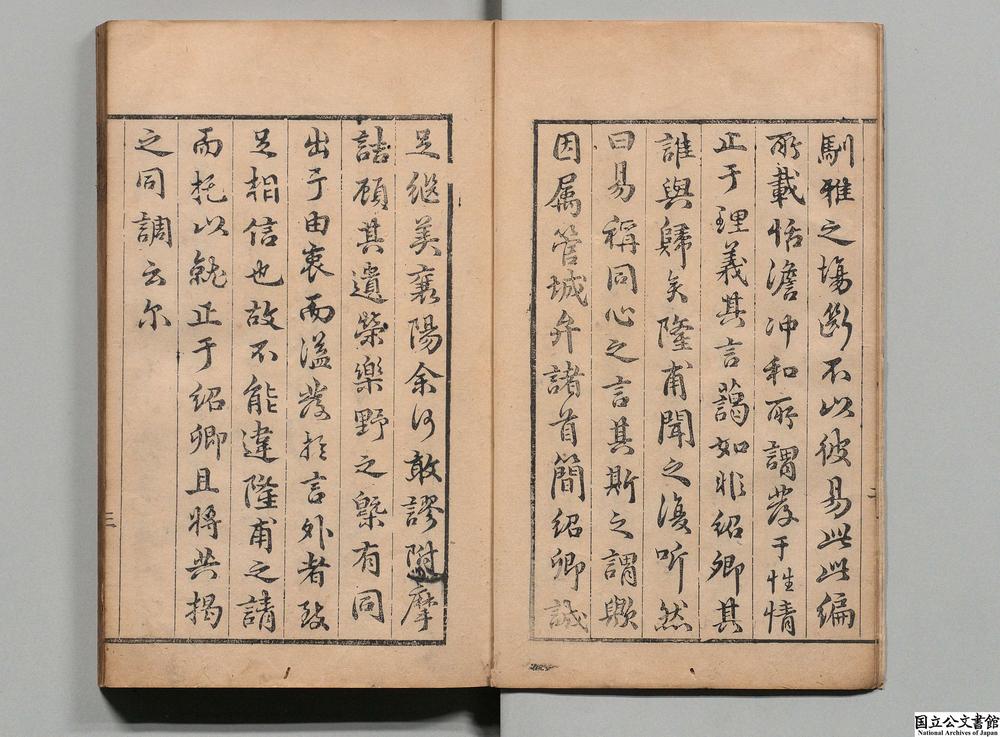 馴雅之塲斷不以彼易此此編
所載恬澹冲和所謂發于性情
止于理義其言藹如非紹卿其
誰與歸矣隆甫聞之復听然
曰易稱同心之言其斯之謂歟
因属管城弁諸首簡紹卿誠
二
足繼美襄陽余何敢謬附摩
詰顧其遺榮樂野之槩有同
出于由衷而溢發於言外者致
足相信也故不能違隆甫之請
而托以就正于紹卿且將共揭
之同調云尔
三
国立公文書館
National Archives of Japan